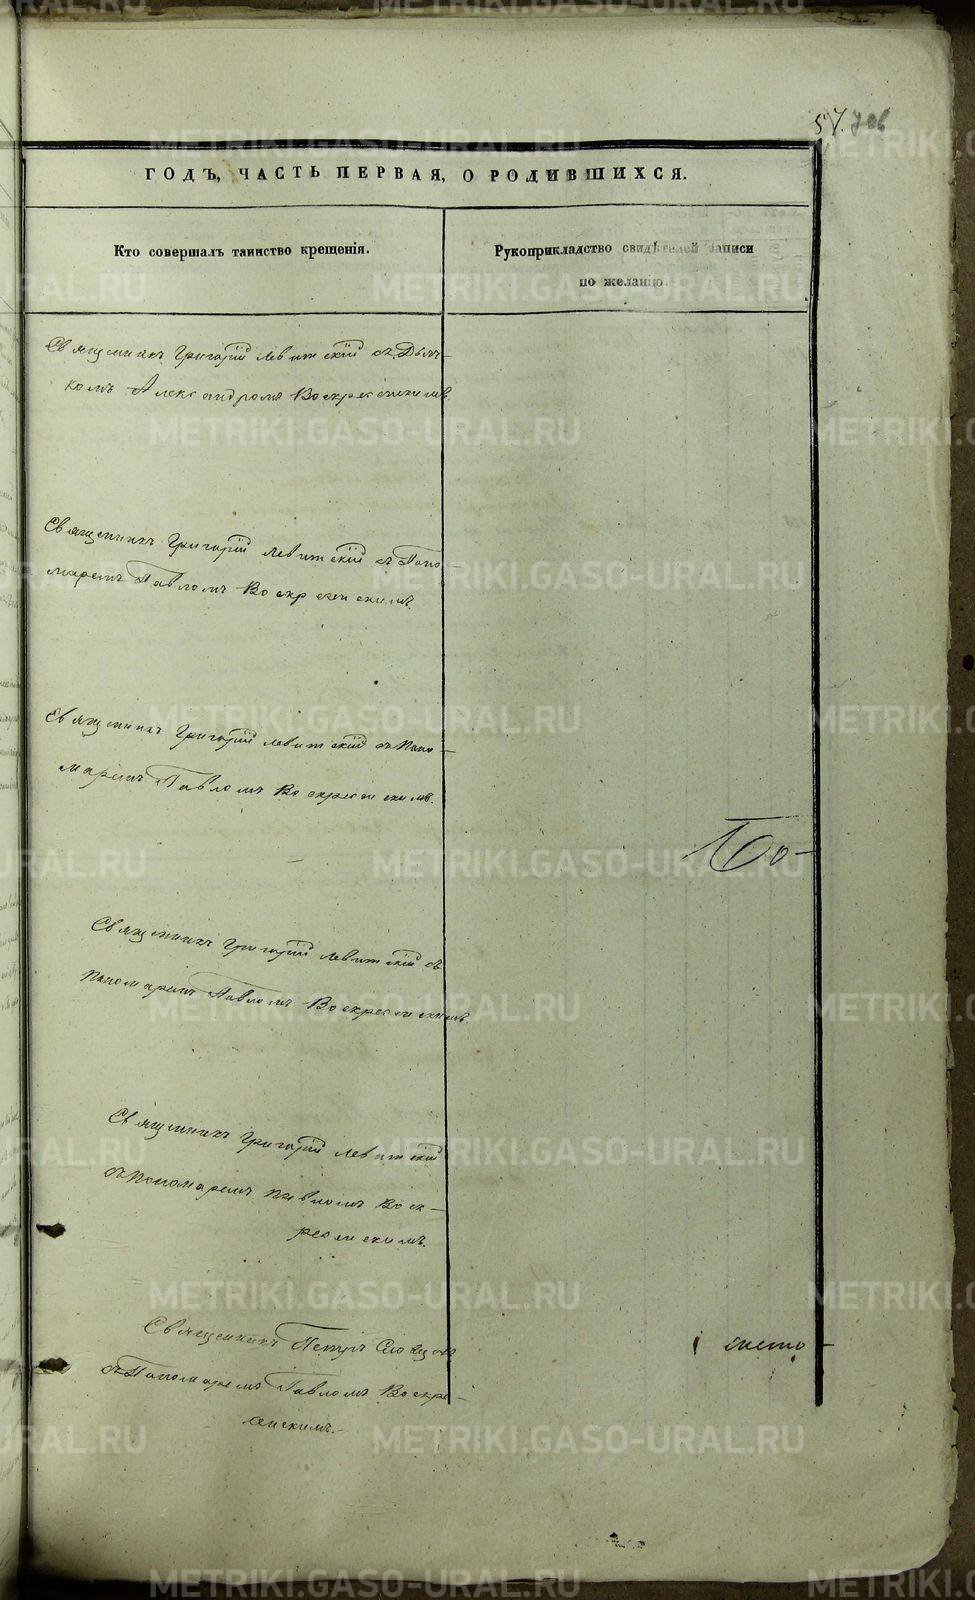 57. 706
ГОДЪ, ЧАСТЬ ПЕРВАЯ, О РОДИВШИХСЯ.
Кто совершалъ таинство крещенія.
Рукоприкладство свидѣтелей записи
по желанію.
Священникъ Григорій Левитскій съ Дьяч-
комъ Александромъ Воскресенскимъ.
Священникъ Григорій Левитскій съ Поно-
маремъ Павломъ Воскресенскимъ.
Священникъ Григорій Левитскій съ Поно-
маремъ Павломъ Воскресенскимъ.
Священникъ Григорій Левитскій съ
Пономаремъ Павломъ Воскресенскимъ.
Священникъ Григорій Левитскій
съ Пономаремъ Павломъ Воск-
ресенскимъ.
Священникъ Петръ
съ Пономаремъ Павломъ Воскре-
сенскимъ.
METRIKI.GASO-URAL.RU